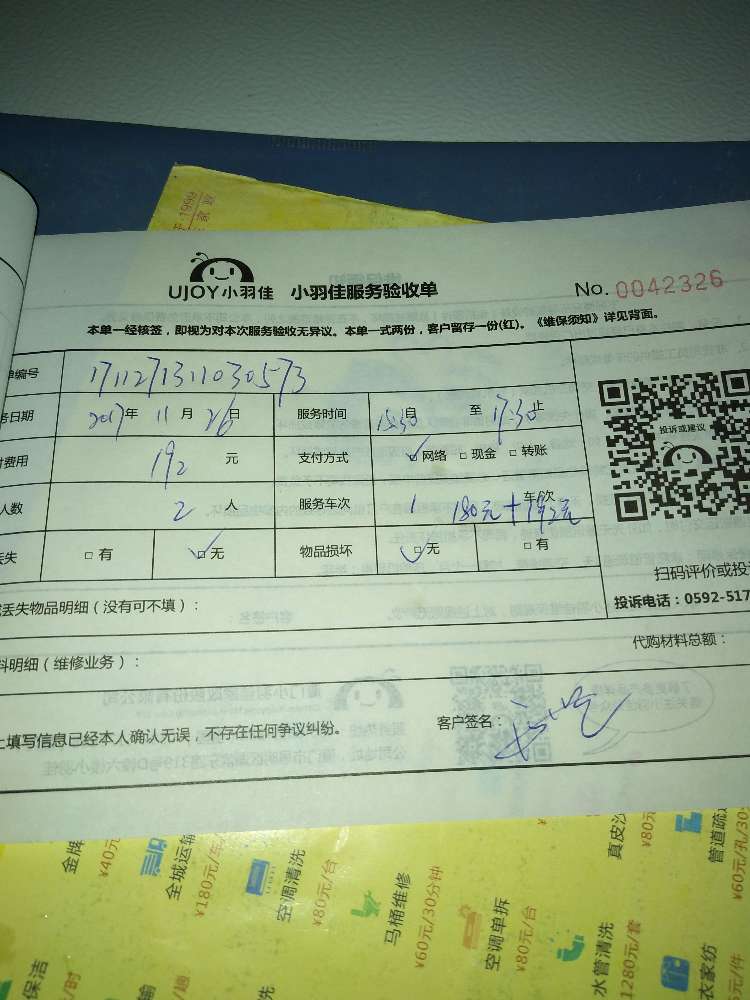 UJOY小羽佳 小羽佳服务验收单 No. 0042326
本单一经核签，即视为对本次服务验收无异议。本单一式两份，客户留存一份(红)。《维保须知》详见背面。
编号 1711271311030573
日期 2017年 11月 26日 服务时间 15:30自 至 17:30止
费用 192 元 支付方式 网络 现金 转账
人数 2 人 服务车次 1 车/次 180元+192元
丢失 有 无 物品损坏 无 有
投诉或建议
扫码评价或投
投诉电话：0592-517
丢失物品明细（没有可不填）：
代购材料总额：
料明细（维修业务）：
上填写信息已经本人确认无误，不存在任何争议纠纷。 客户签名：
金牌
¥40元
全城运输
¥180元/车
空调清洗
¥80元/台
马桶维修
¥60元/30分钟
空调单拆
¥80元/台
水管清洗
1280元/套
真皮沙
¥80元
管道疏
¥60元/孔/30
衣家纺
元/件
保洁
/时
输
/趟
洗